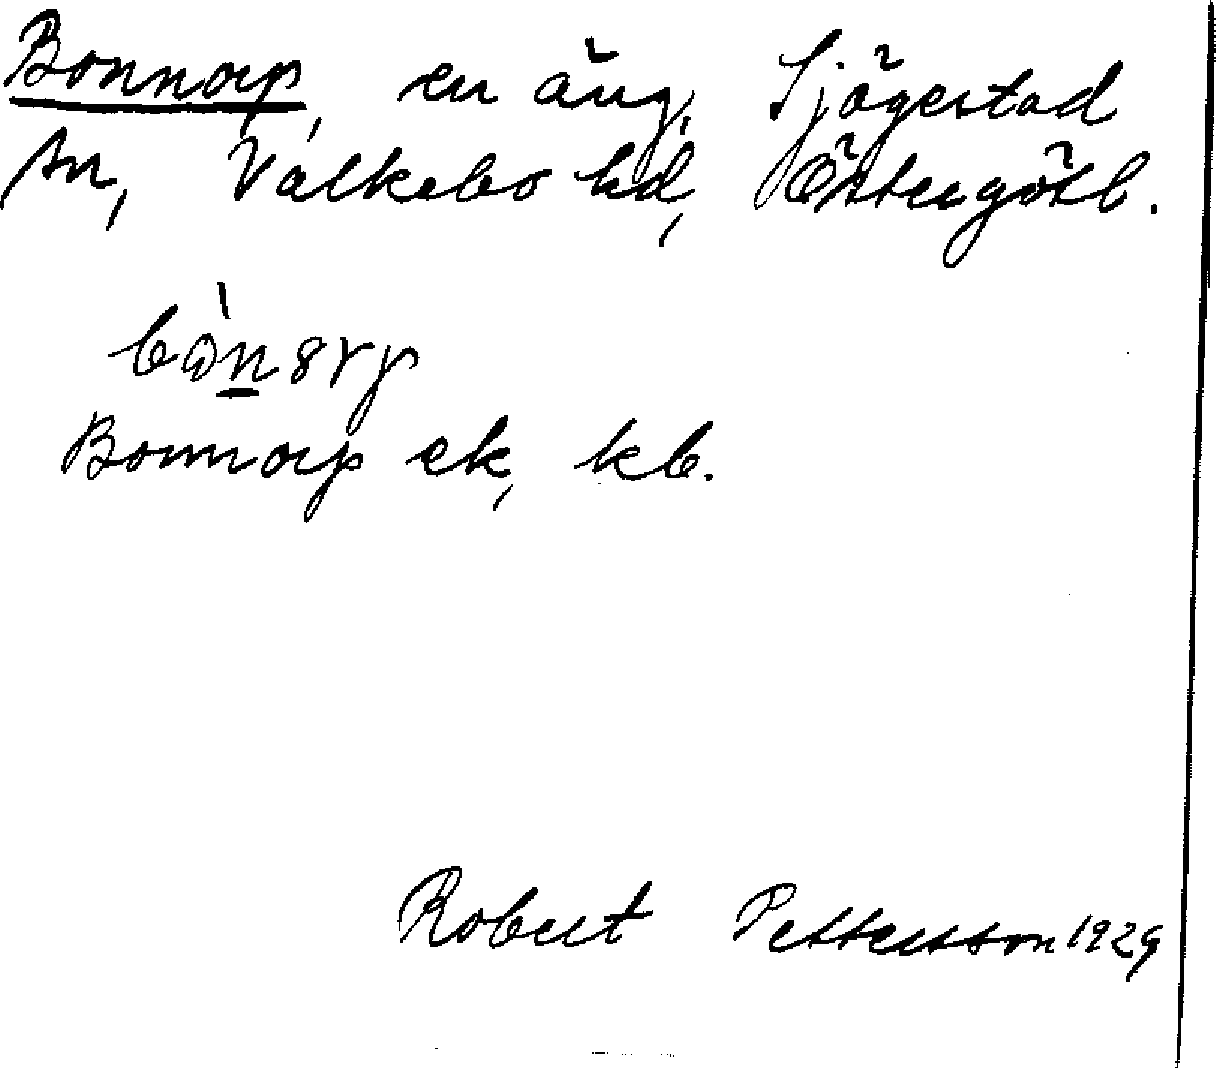 Bonnorp, en äng, Sjögestad
sn, Valkebo hd, Östergötl.
Bonnorp ek, kb.
Robert Pettersson 1929